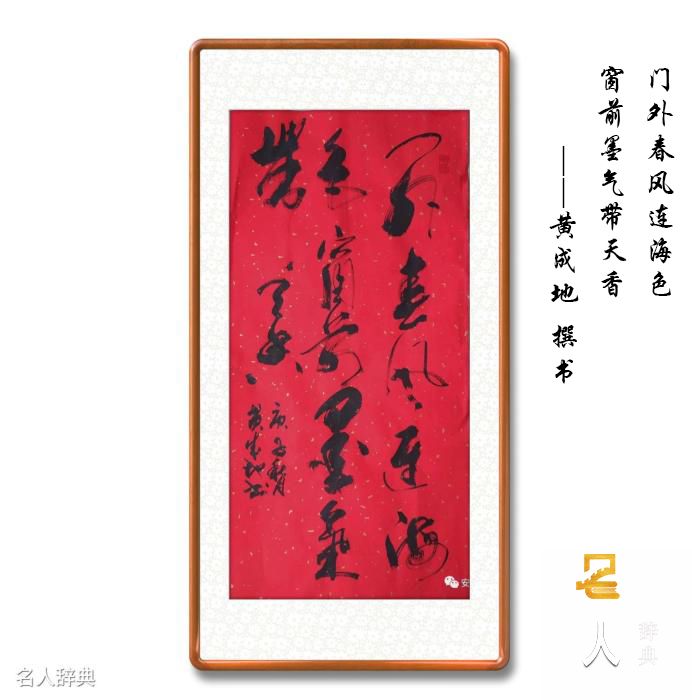 门外春风连海色
窗前墨气带天香
——黄成地 撰书
门外春风连海
色窗前墨氣
带天香
庚子秋月
黄成地书
安
名
人
辞典
名人辞典